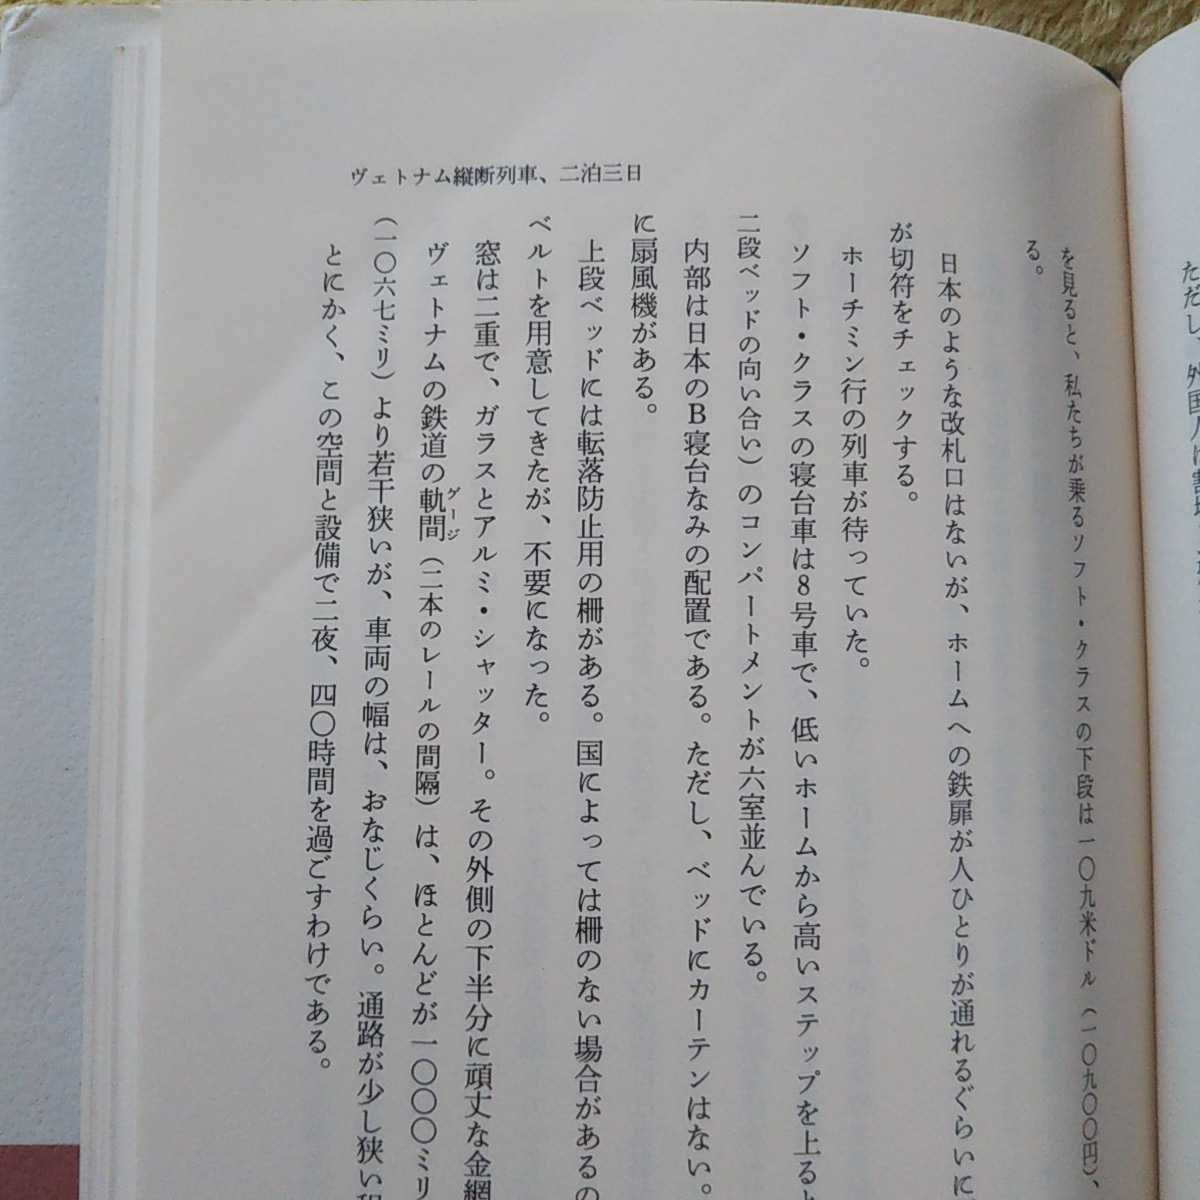 ヴェトナム縦断列車、二泊三日
を見ると、私たちが乗るソフト・クラスの下段は一〇九米ドル（一〇九〇〇円）、
る。
日本のような改札口はないが、ホームへの鉄扉が人ひとりが通れるぐらいに
が切符をチェックする。
ホーチミン行の列車が待っていた。
ソフト・クラスの寝台車は8号車で、低いホームから高いステップを上ると
二段ベッドの向い合い）のコンパートメントが六室並んでいる。
内部は日本のB寝台なみの配置である。ただし、ベッドにカーテンはない。
に扇風機がある。
上段ベッドには転落防止用の柵がある。国によっては柵のない場合があるの
ベルトを用意してきたが、不要になった。
窓は二重で、ガラスとアルミ・シャッター。その外側の下半分に頑丈な金網
ヴェトナムの鉄道の軌間ゲージ（二本のレールの間隔）は、ほとんどが一〇〇〇ミリ
（一〇六七ミリ）より若干狭いが、車両の幅は、おなじくらい。通路が少し狭い
とにかく、この空間と設備で二夜、四〇時間を過ごすわけである。